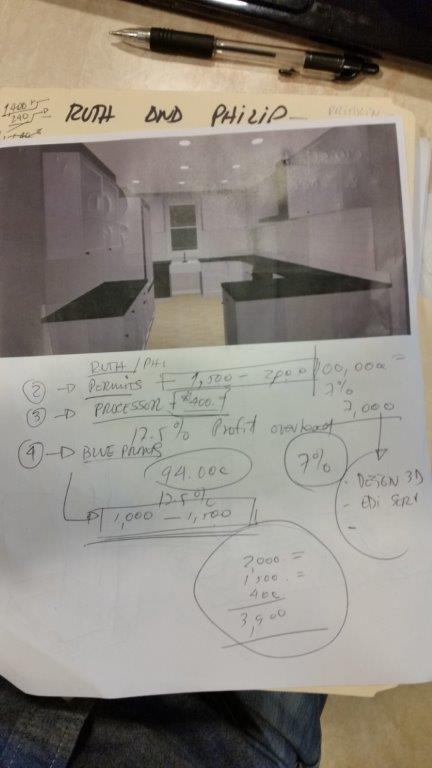 1,400
240
RUTH AND PHILIP
RUTH/PHI
② → PERMITS 1,500 - 2000 100,000 =
7%
③ → PROCESSOR $400. 7,000
17.5% Profit overhead
④ → BLUE PRINTS 7%
94.000
17.5%
1,000 - 1,500
- DESIGN 3D
- EDI SERV
-
2,000. =
1500. =
400
3,900